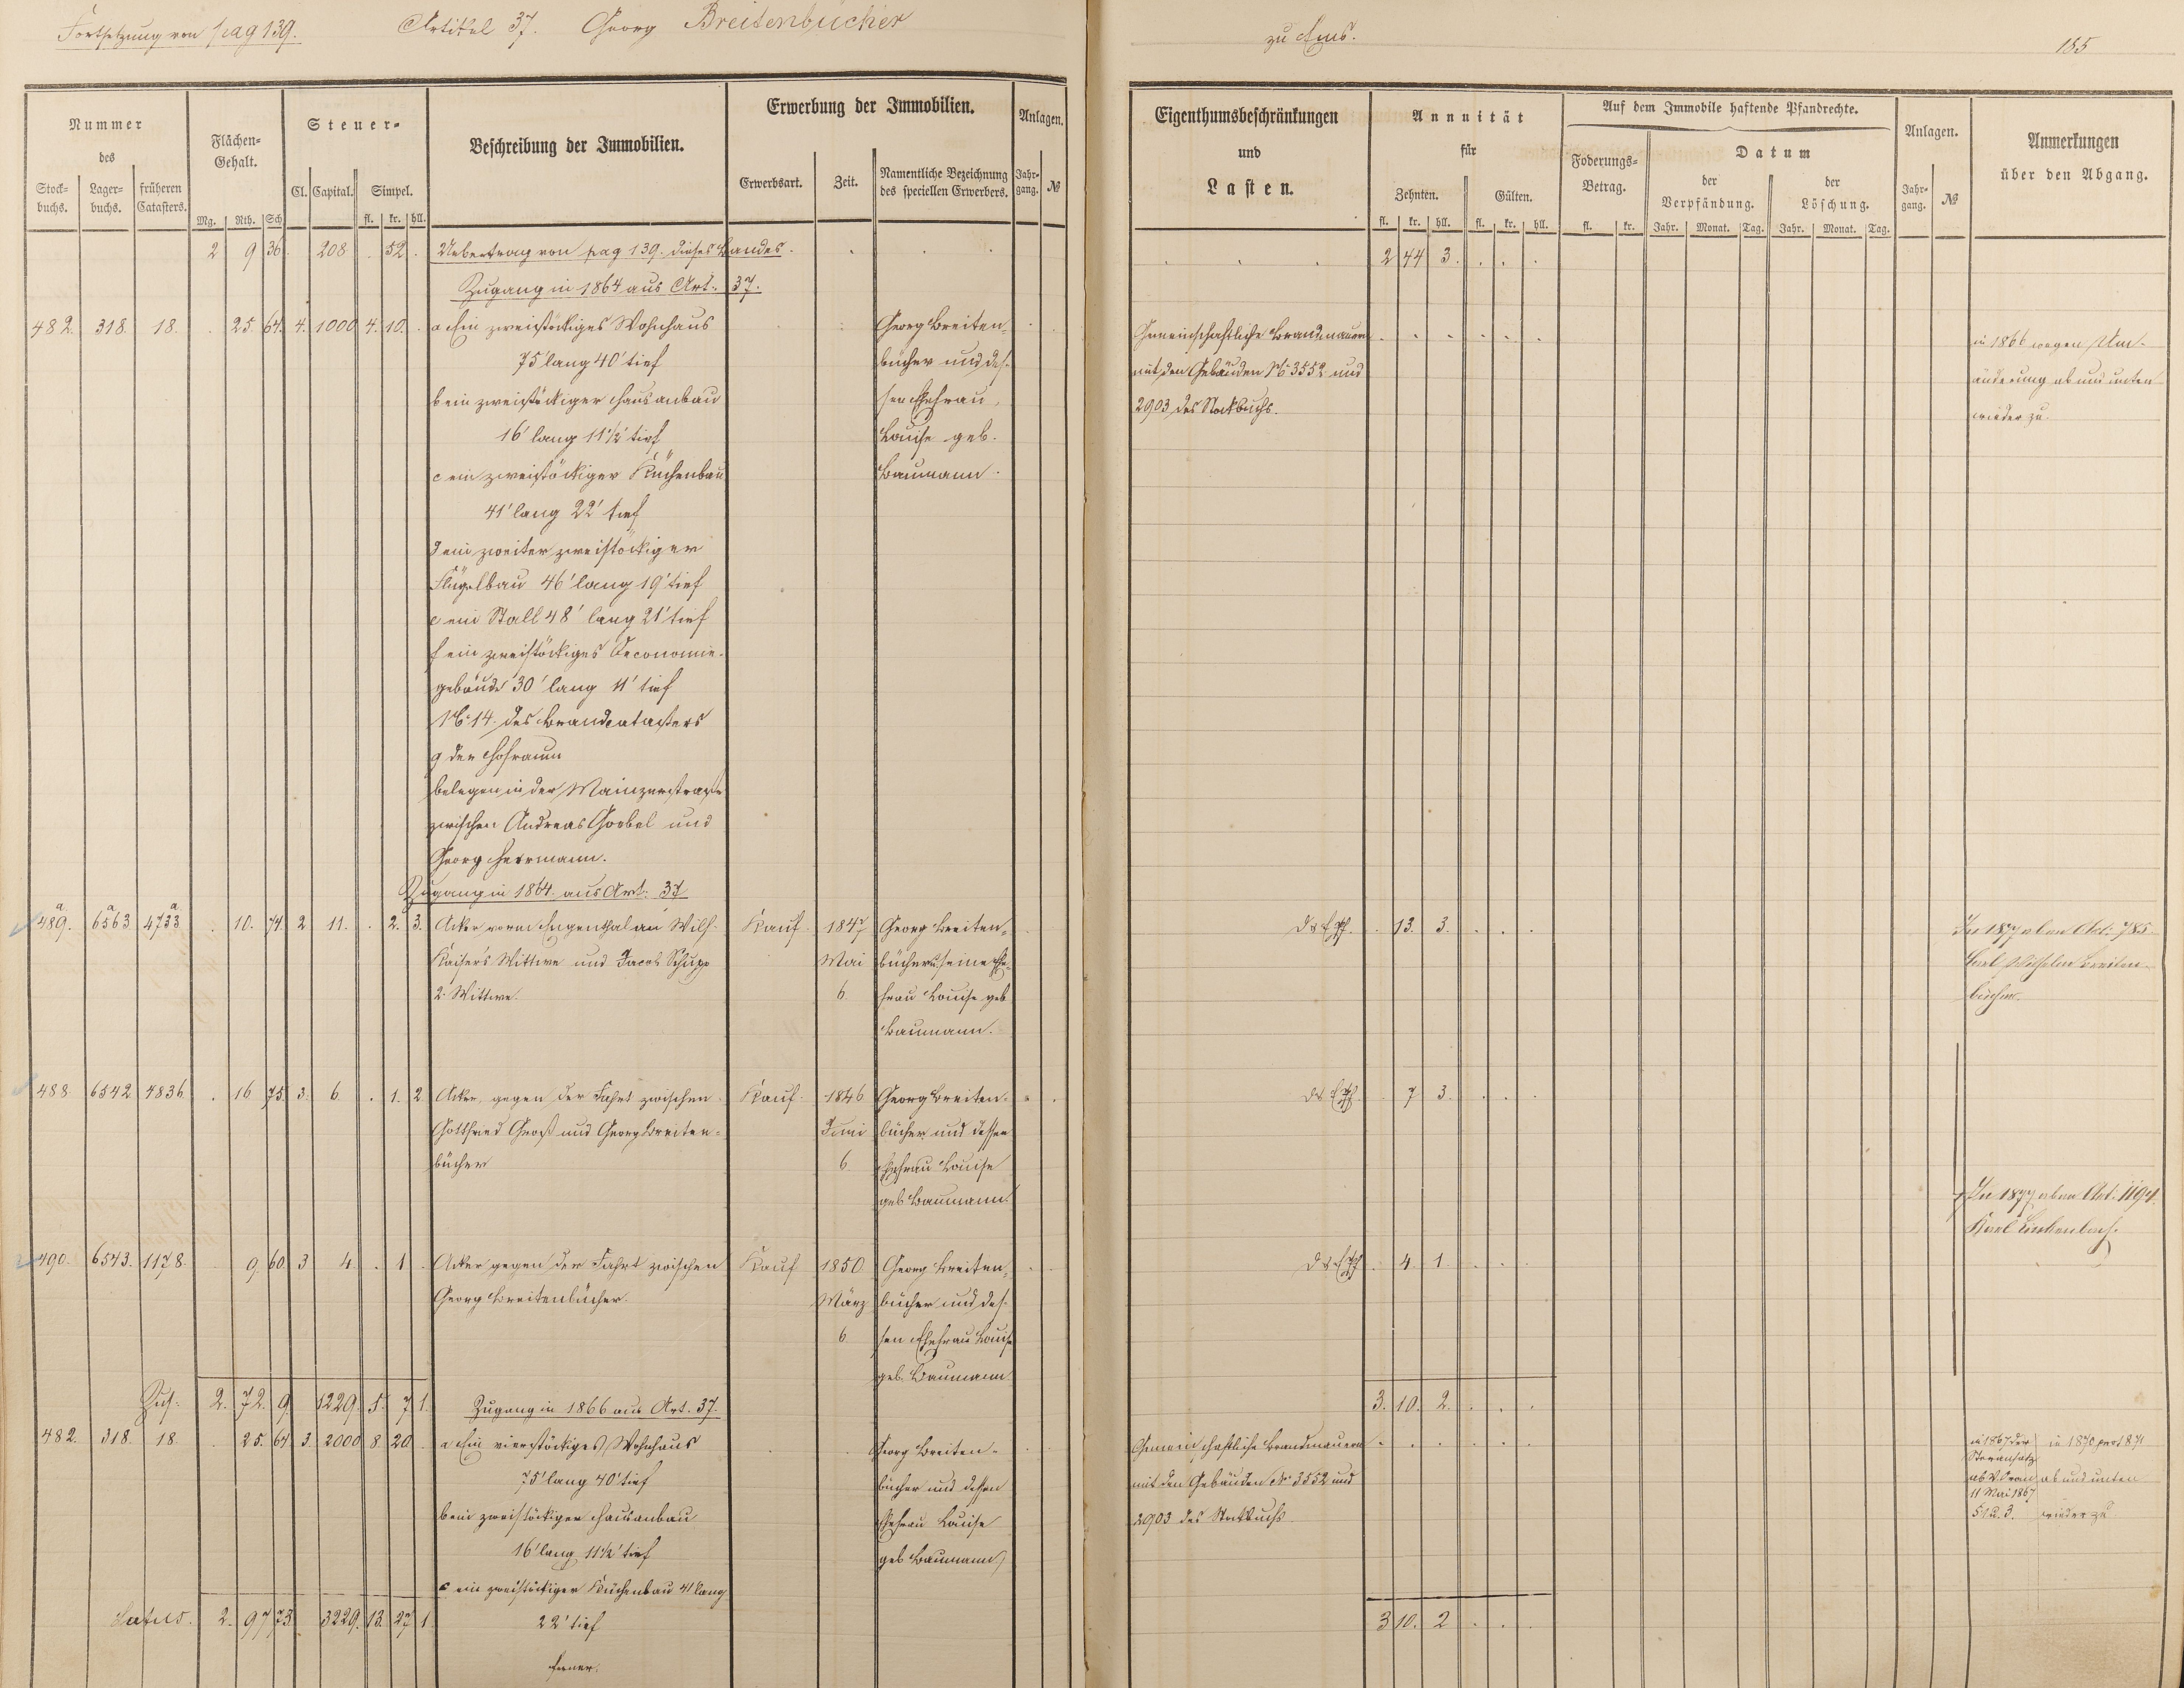 Fortsetzung von pag 139. Artikel 37. Georg Breitenbücher zu Ems. 185
Nummer des
Stock-buchs. Lager-buchs. früheren Catasters.
Flächen-Gehalt.
Mg. Rth. Sch
Steuer-
Cl. Capital. Simpel.
fl. kr. hll.
Beschreibung der Immobilien.
Erwerbung der Immobilien.
Erwerbsart. Zeit. Namentliche Bezeichnung des speciellen Erwerbers.
Anlagen.
Jahr-gang. №
Eigenthumsbeschränkungen
und
Lasten.
Annuität
für
Zehnten. Gülten.
fl. kr. hll. fl. kr. hll.
Auf dem Immobile haftende Pfandrechte.
Foderungs-Betrag.
fl. kr.
Datum
der Verpfändung. der Löschung.
Jahr. Monat. Tag. Jahr. Monat. Tag.
Anlagen.
Jahr-gang. №
Anmerkungen
über den Abgang.
2 9 36. 208 . 52. . Uebertrag von pag 139. dieses Bandes . 2 44 3.
Zugang in 1864 aus Art. 37.
482. 318. 18. . 25. 64. 4. 1000 4. 10. . a Ein zweistöckiges Wohnhaus Georg Breiten= Gemeinschaftliche Brandmauern in 1866 wegen Um-
75' lang 40' tief bücher und des- mit den Gebäuden № 3552 und änderung ab und unten
b ein zweistöckiger Hausanbau sen Ehefrau, 2903 des Stockbuchs. wieder zu.
16' lang 11½' tief Louise geb.
c ein zweistöckiger Küchenbau Baumann.
41' lang 22' tief
d ein zweiter zweistöckiger
Flügelbau 46' lang 19' tief
e ein Stall 48' lang 21' tief
f ein zweistöckiges Oeconomie-
gebäude 30' lang 11' tief
№ 14. des Brandcatasters
g der Hofraum
belegen in der Mainzerstraße
zwischen Andreas Goebel und
Georg Herrmann.
Zugang in 1864. aus Art: 37
489.a 6563a 4733a . 10. 74. 2 11. . 2. 3. Acker vorm Engenthal an Wilh. Kauf 1847 Georg Breiten= 13. 3. In 1877 ab an Art: 785
Kaisers Wittwe und Jacob Schupp Mai bücher u. seine Ehe- Carl Wilhelm Breiten-
2. Wittwe. 6. frau Louise geb. bücher.
Baumann.
488. 6542 4836 . 16 75. 3. 6. . 1. 2. Acker, gegen der Fahrt zwischen Kauf. 1846 Georg Breiten- 7 3.
Gottfried Groß und Georg Breiten= Juni bücher und dessen
bücher 6 Ehefrau Louise
geb Baumann. In 1877 ab an Art. 1194.
490. 6543. 1178. . 9. 60. 3 4. . 1 . Acker gegen der Fahrt zwischen Kauf 1850 Georg Breiten= 4. 1.
Georg Breitenbücher. März bücher und des-
6 sen Ehefrau Louise
geb. Baumann
Zus. 2. 72. 9 1229. 5. 7 1. Zugang in 1866 aus Art. 37. 3. 10. 2.
482. 318. 18. . 25. 64. 3. 2000 8. 20 . a Ein vierstöckiges Wohnhaus Georg Breiten- Gemeinschaftliche Brandmauern in 1867 der
75' lang 40' tief bücher und dessen mit den Gebäuden № 3552 und ab und unten
11 Mai 1867
b ein zweistöckiger Hausanbau Ehefrau Louise 2903 des Stockbuchs § 1 u. 3. wieder zu
16' lang 11½' tief geb Baumann
c ein zweistöckiger Küchenbau 41' lang
Latus. 2. 97 73 3229. 13. 27 1. 22' tief 3 10. 2
ferner.